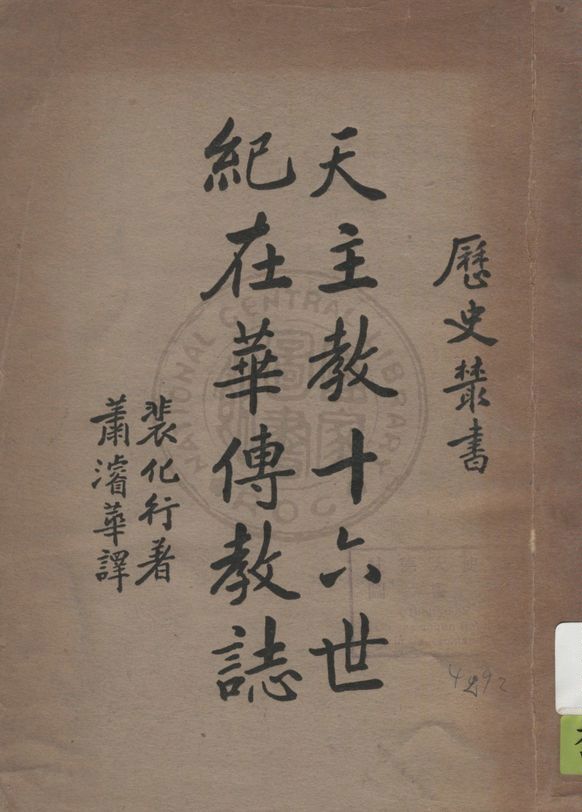 歷史叢書
天主教十六世
紀在華傳教誌
裴化行著
蕭濬華譯
NATIONAL CENTRAL LIBRARY
R.O.C
4892